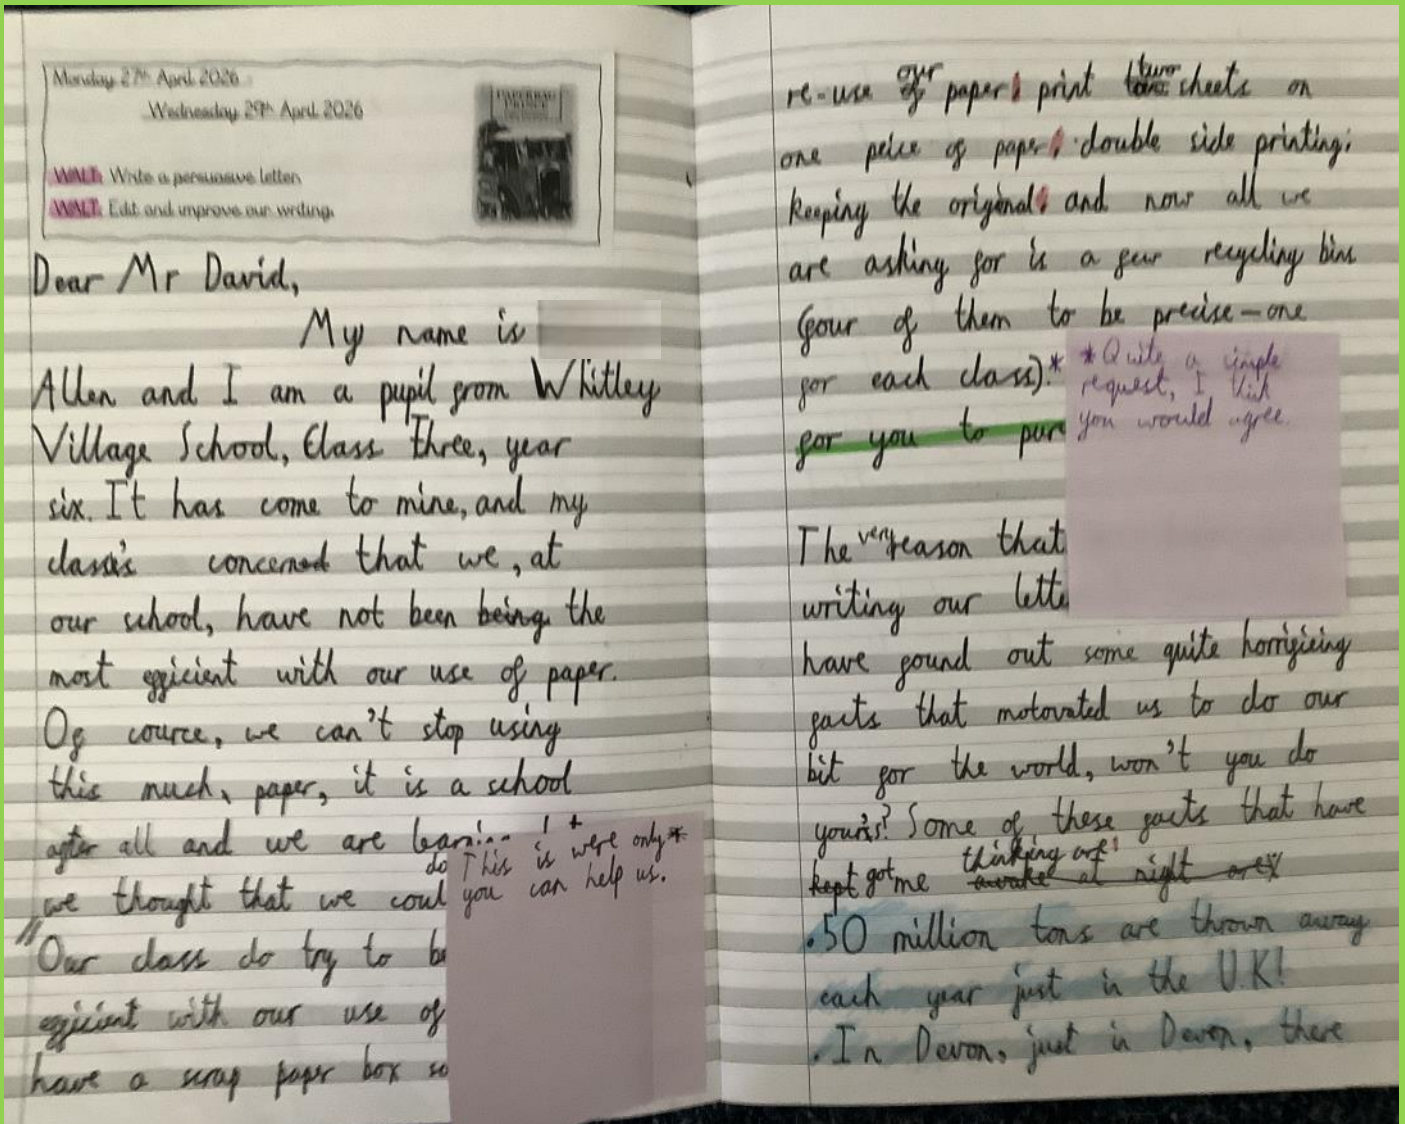 Monday 27th April 2026
Wednesday 29th April 2026
WALT: Write a persuasive letter.
WALT: Edit and improve our writing.
Dear Mr David,
My name is
Allen and I am a pupil from Whitley
Village School, Class Three, year
six. It has come to mine, and my
class's concerned that we, at
our school, have not been being the
most efficient with our use of paper.
Of cource, we can't stop using
this much, paper, it is a school
after all and we are
do
we thought that we coul
This is were only*
you can help us.
Our class do try to be
efficient with our use of
have a scrap paper box so
our
re-use of paper; print two sheets on
two
one peice of paper; double side printing;
keeping the original; and now all we
are asking for is a few recycling bins
(four of them to be precise – one
for each class).*
for you to pur
*Quite a simple
request, I thik
you would agree.
The very reason that
writing our lette
have found out some quite horrificing
facts that motovated us to do our
bit for the world, won't you do
yours? Some of these facts that have
thinking are:
kept got me awake at night are:
• 50 million tons are thrown away
each year just in the U.K!
• In Devon, just in Devon, there